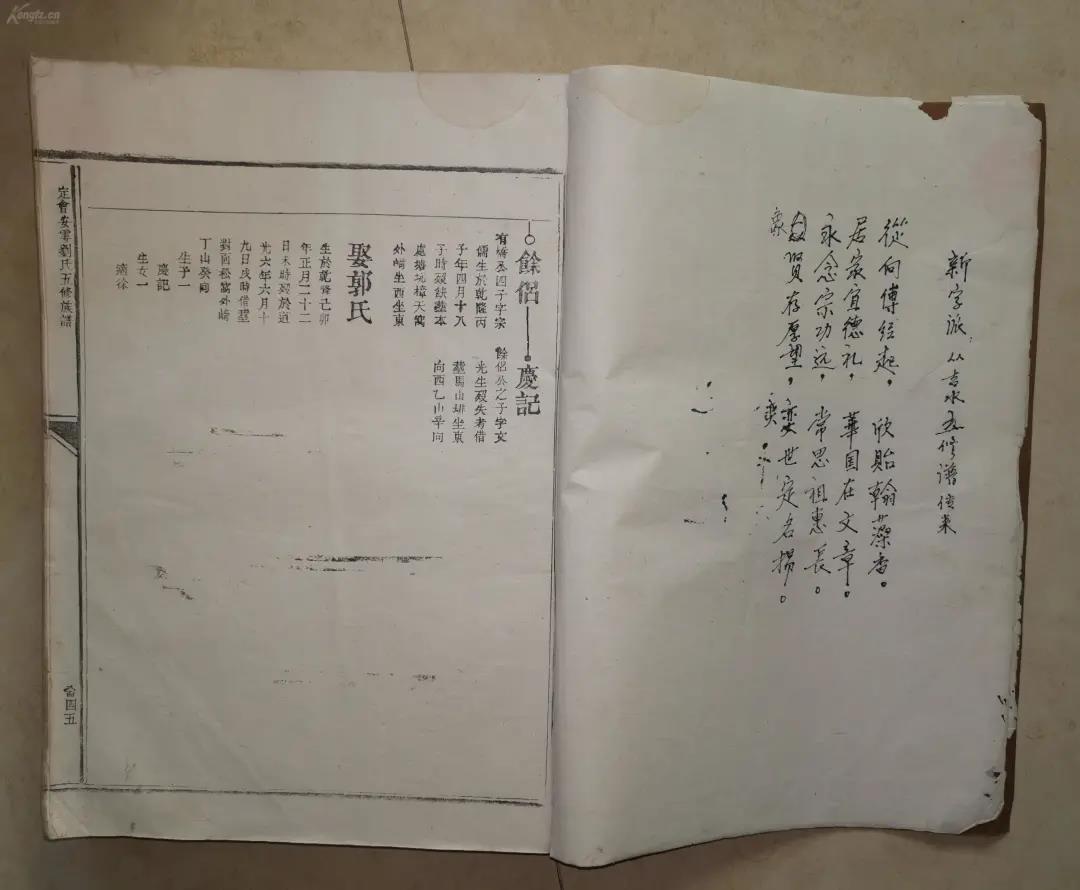 Kongfz.cn
新字派,从吉水五修谱传来
從向傅经起,欣貽翰藻香。
居家宜德礼,華国在文章。
永念宗功远,常思祖惠長。
象賢存厚望,奕世定名揚。
餘侶
慶記
有橋公四子字宗
儒生於乾隆丙
子年四月十八
子時歿缺葬本
處塘坑樟天窩
外崎坐西坐東
娶郭氏
生於乾隆己卯
年正月二十二
日未時歿於道
光六年六月十
九日戌時借葬
對面松窩外崎
丁山癸向
生子一
慶記
生女一
適徐
餘侶公之子字文
光生歿失考借
葬馬山排坐東
向西乙山辛向
定會安雩劉氏五修族譜
四五